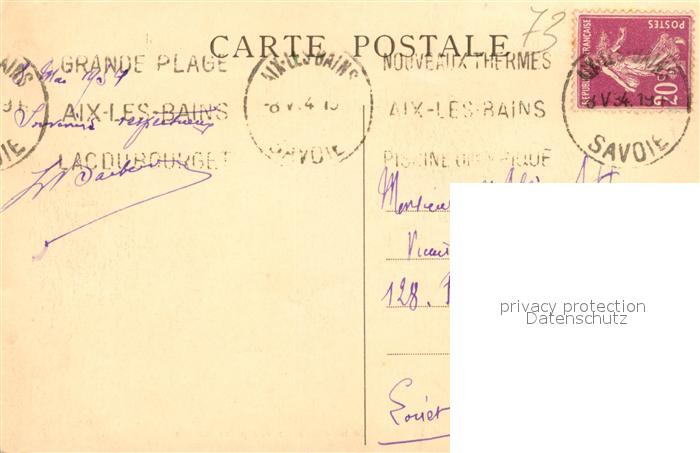 73
CARTE POSTALE
GRANDE PLAGE
AIX-LES-BAINS
LAC DU BOURGET
AIX-LES-BAINS
-8 V. 4 19
SAVOIE
NOUVEAUX THERMES
AIX-LES-BAINS
PISCINE OLYMPIQUE
POSTES
REPUBLIQUE FRANÇAISE
20c
8 V 34. 19
SAVOIE
8 Mai 1934
Souvenirs respectueux
Monsieur
128.
Loiret
privacy protection
Datenschutz